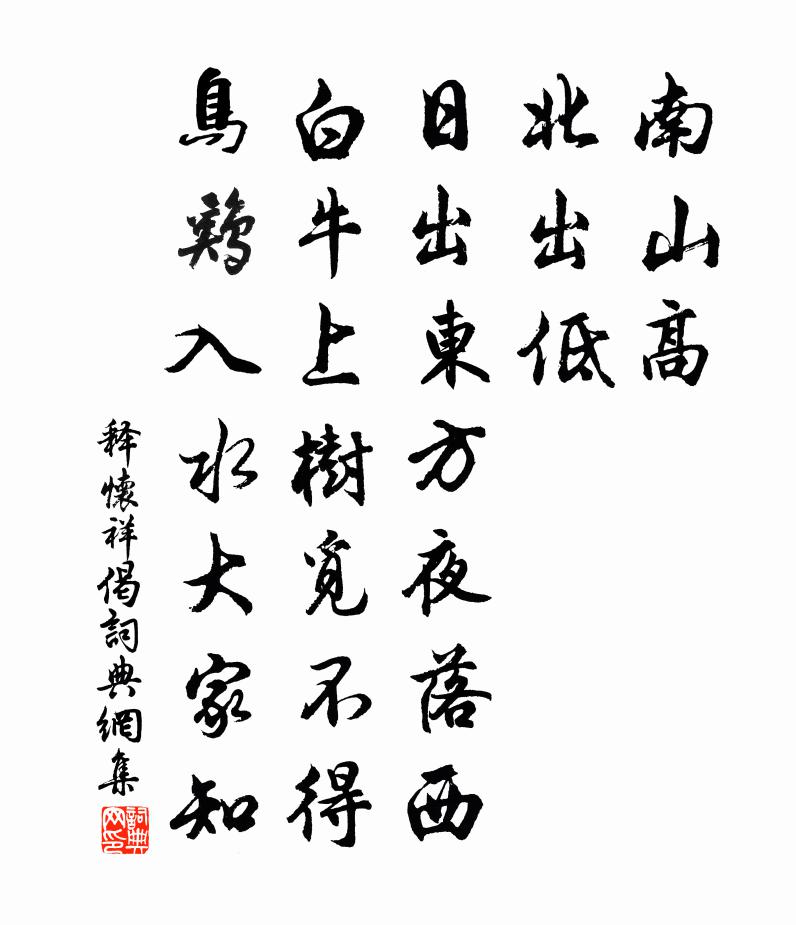 南山高
北出低
日出東方夜落西
白牛上樹覓不得
烏鷄入水大家知
释懷祥偈詞典網集
詞典
网印